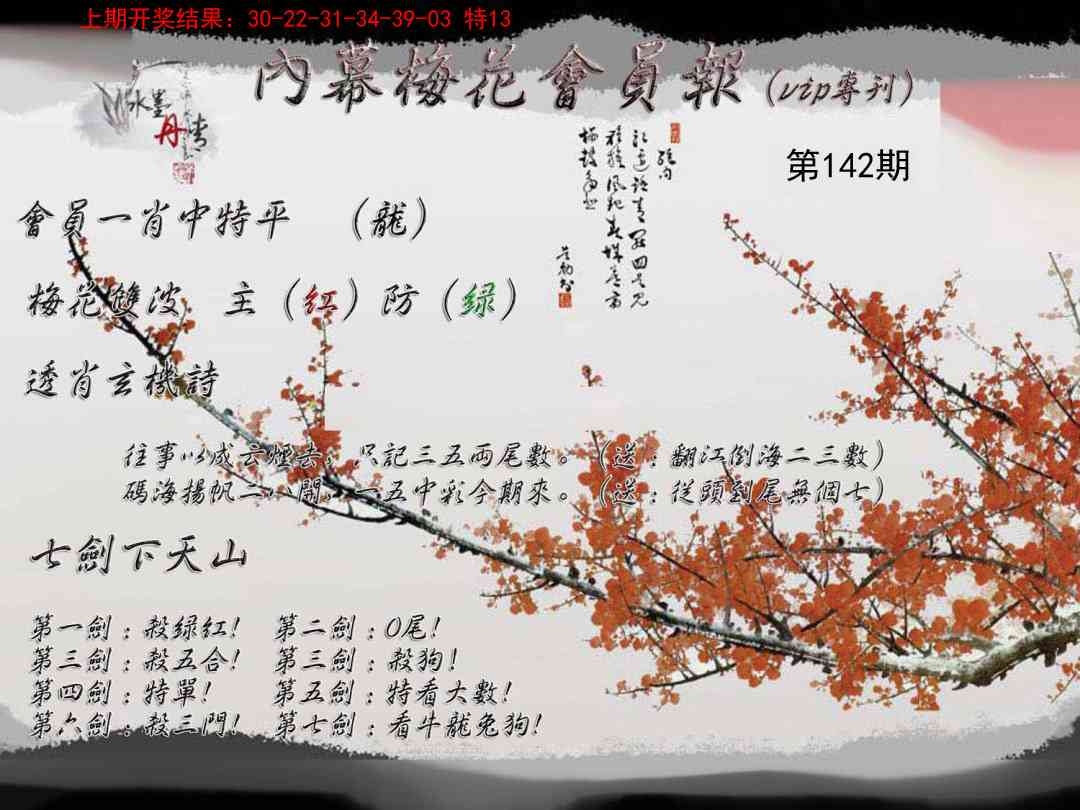 上期开奖结果：30-22-31-34-39-03 特13
內幕梅花會員報(vip專刊)
水墨
丹青
第142期
會員一肖中特平 （龍）
梅花雙波 主（紅）防（绿）
透肖玄機詩
往事以成云煙去，只記三五兩尾數。（送：翻江倒海二三數）
碼海揚帆二八開，一五中彩今期來。（送：從頭到尾無個七）
七劍下天山
第一劍：殺绿红！ 第二劍：0尾！
第三劍：殺五合！ 第三劍：殺狗！
第四劍：特單！ 第五劍：特看大數！
第六劍：殺三門！ 第七劍：看牛龍兔狗！